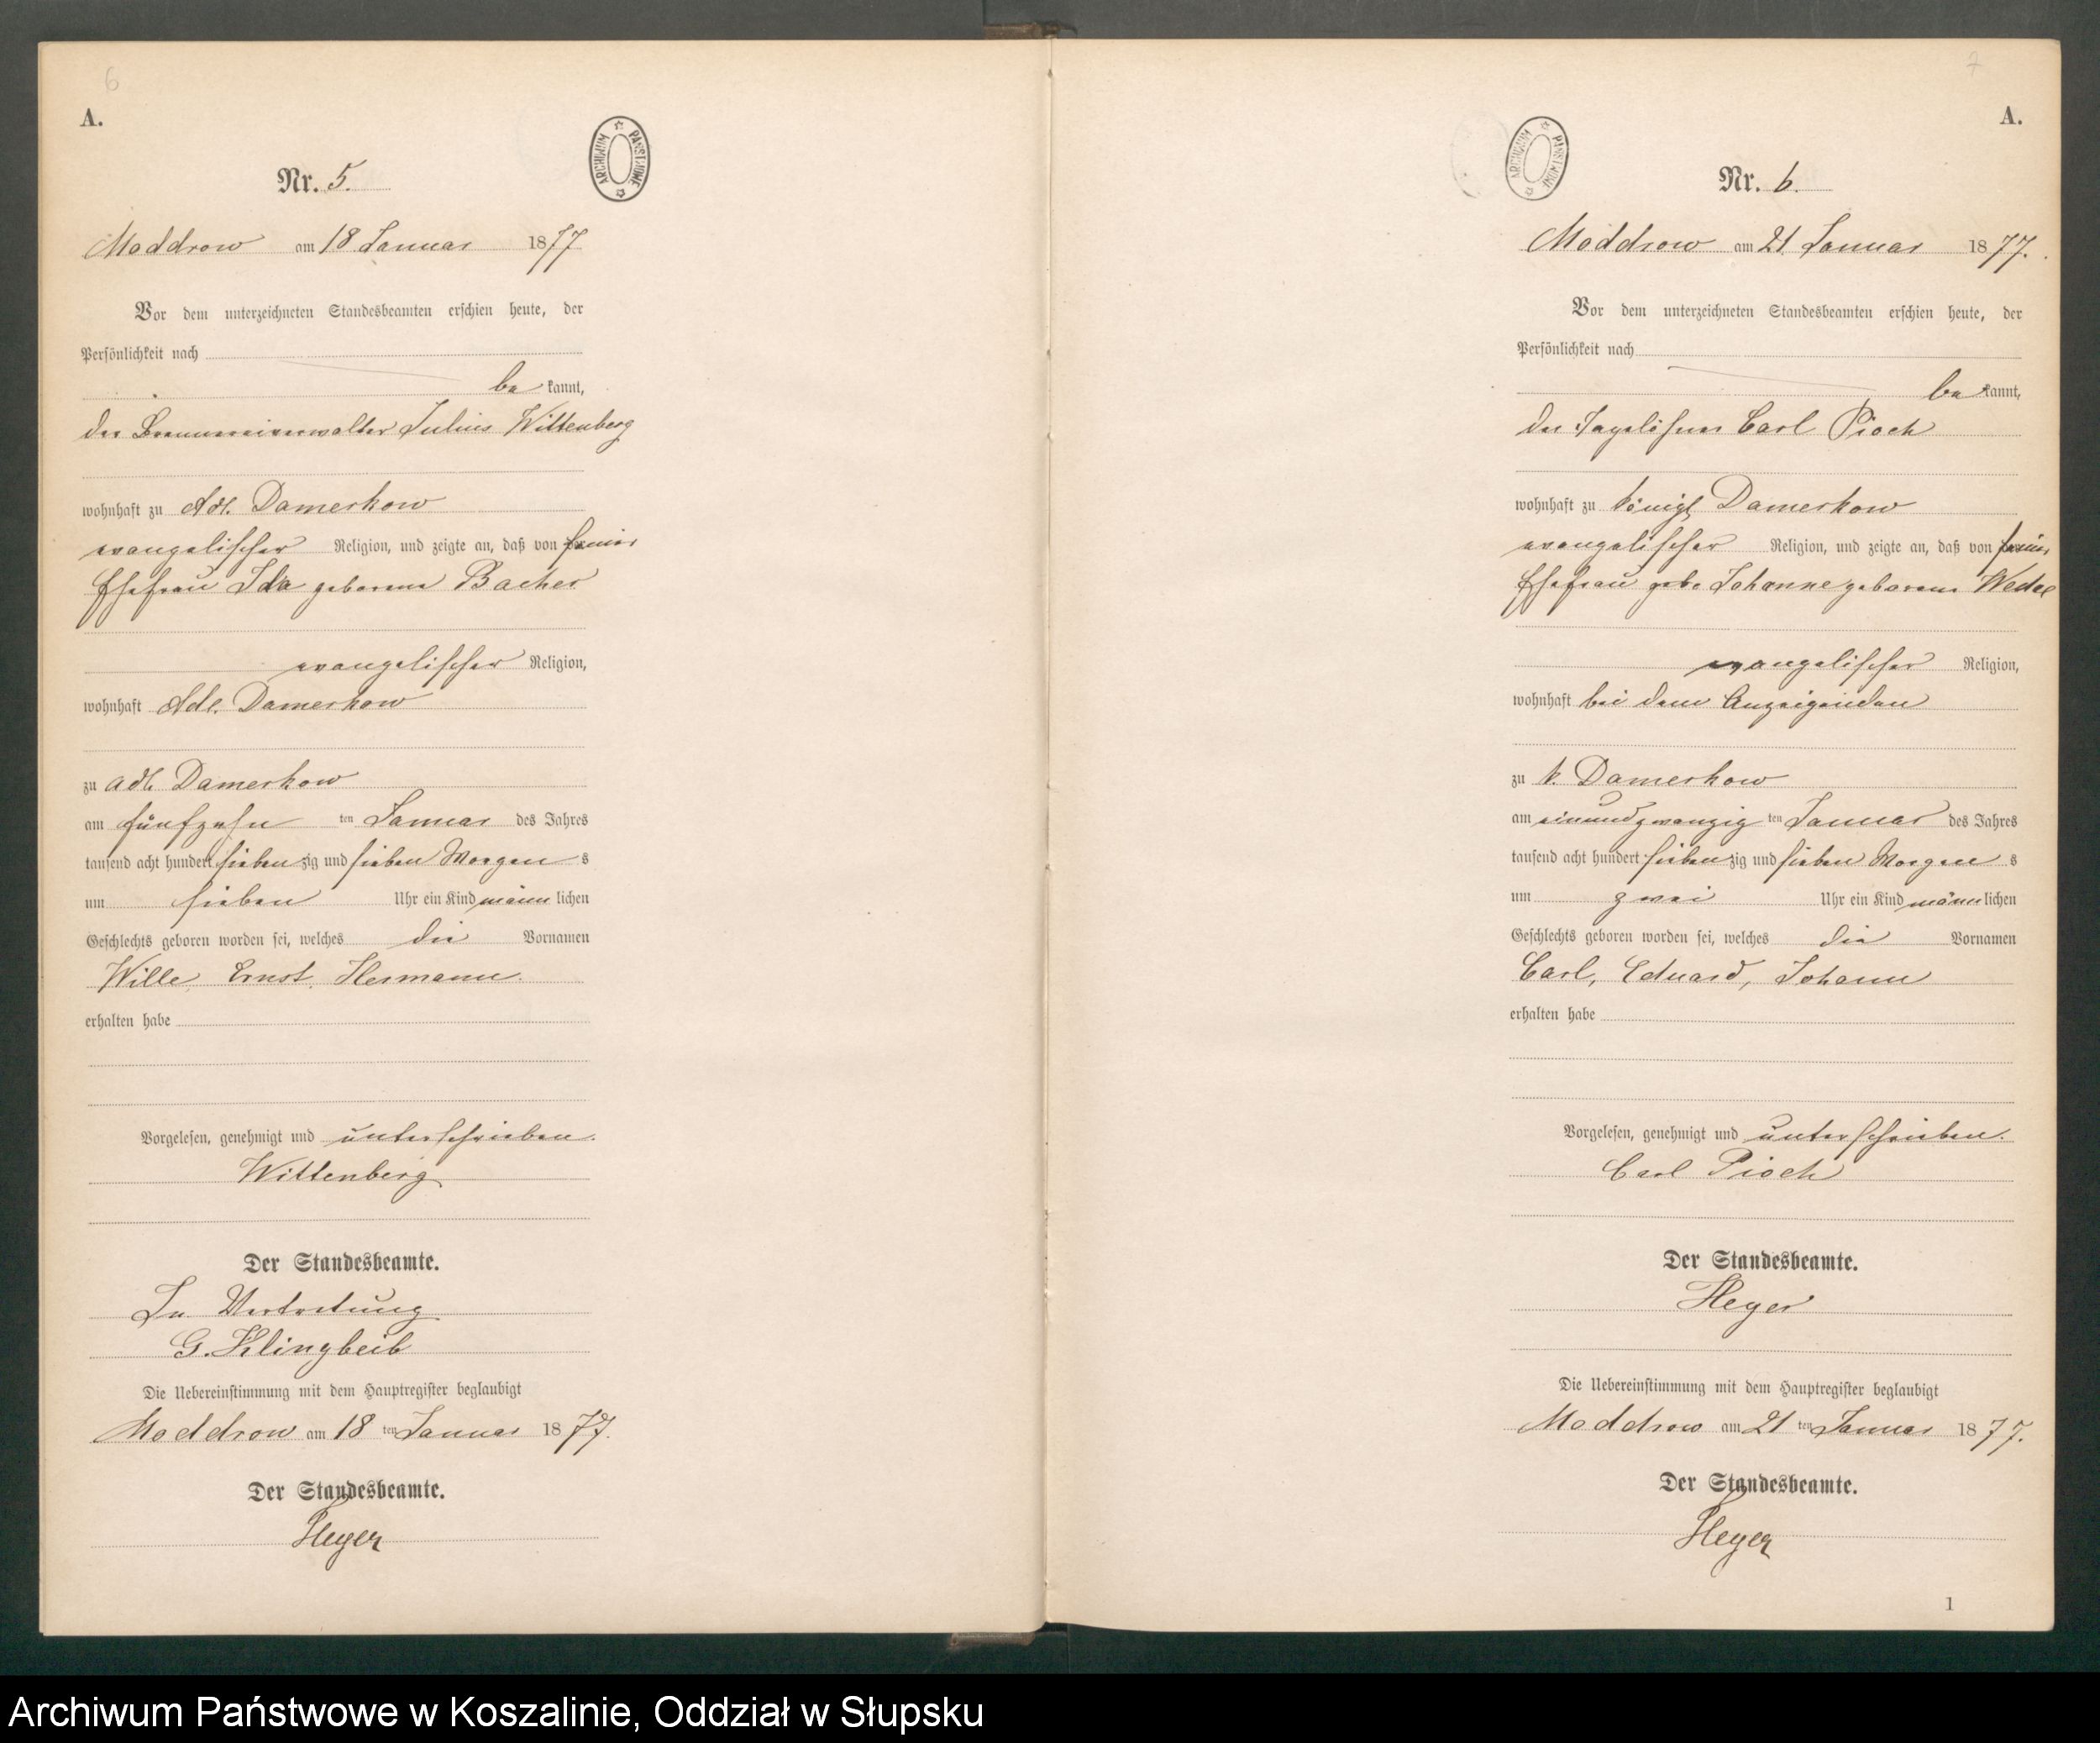 6
A.
ARCHIWUM PAŃSTWOWE
Nr. 5.
Moddrow am 18 Januar 1877
Vor dem unterzeichneten Standesbeamten erschien heute, der
Persönlichkeit nach
be kannt,
der Brennereiverwalter Julius Wittenberg
wohnhaft zu Adl. Damerkow
evangelischer Religion, und zeigte an, daß von seiner
Ehefrau Ida geborene Bacher
evangelischer Religion,
wohnhaft Adl. Damerkow
zu adl. Damerkow
am fünfzehn ten Januar des Jahres
tausend acht hundert sieben zig und sieben Morgen s
um sieben Uhr ein Kind männ lichen
Geschlechts geboren worden sei, welches die Vornamen
Wille, Ernst, Hermann.
erhalten habe
Vorgelesen, genehmigt und unterschrieben.
Wittenberg
Der Standesbeamte.
In Vertretung
G. Klingbeil
Die Uebereinstimmung mit dem Hauptregister beglaubigt
Moddrow am 18 ten Januar 1877.
Der Standesbeamte.
Heyer
7
A.
ARCHIWUM PAŃSTWOWE
Nr. 6.
Moddrow am 21 Januar 1877.
Vor dem unterzeichneten Standesbeamten erschien heute, der
Persönlichkeit nach
be kannt,
der Tagelöhner Carl Pioch
wohnhaft zu königl Damerkow
evangelischer Religion, und zeigte an, daß von seiner
Ehefrau gebe Johanne geborene Wedel
evangelischer Religion,
wohnhaft bei dem Anzeigenden
zu k. Damerkow
am einundzwanzig ten Januar des Jahres
tausend acht hundert sieben zig und sieben Morgen s
um zwei Uhr ein Kind männ lichen
Geschlechts geboren worden sei, welches die Vornamen
Carl, Eduard, Johann
erhalten habe
Vorgelesen, genehmigt und unterschrieben.
Carl Pioch
Der Standesbeamte.
Heyer
Die Uebereinstimmung mit dem Hauptregister beglaubigt
Moddrow am 21 ten Januar 1877.
Der Standesbeamte.
Heyer
1
Archiwum Państwowe w Koszalinie, Oddział w Słupsku